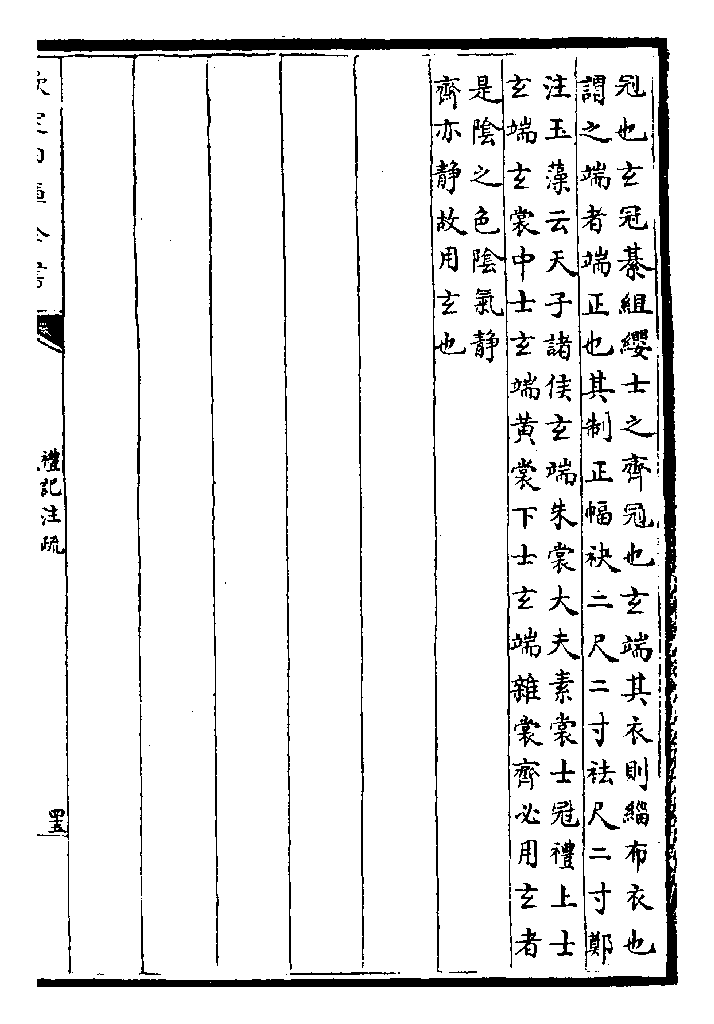 冠也玄冠綦組纓士之齊冠也玄端其衣則緇布衣也
謂之端者端正也其制正幅袂二尺二寸袪尺二寸鄭
注玉藻云天子諸侯玄端朱裳大夫素裳士冠禮上士
玄端玄裳中士玄端黄裳下士玄端雜裳齊必用玄者
是陰之色陰氣静
齊亦静故用玄也
欽定四庫全書
禮記注疏
四五